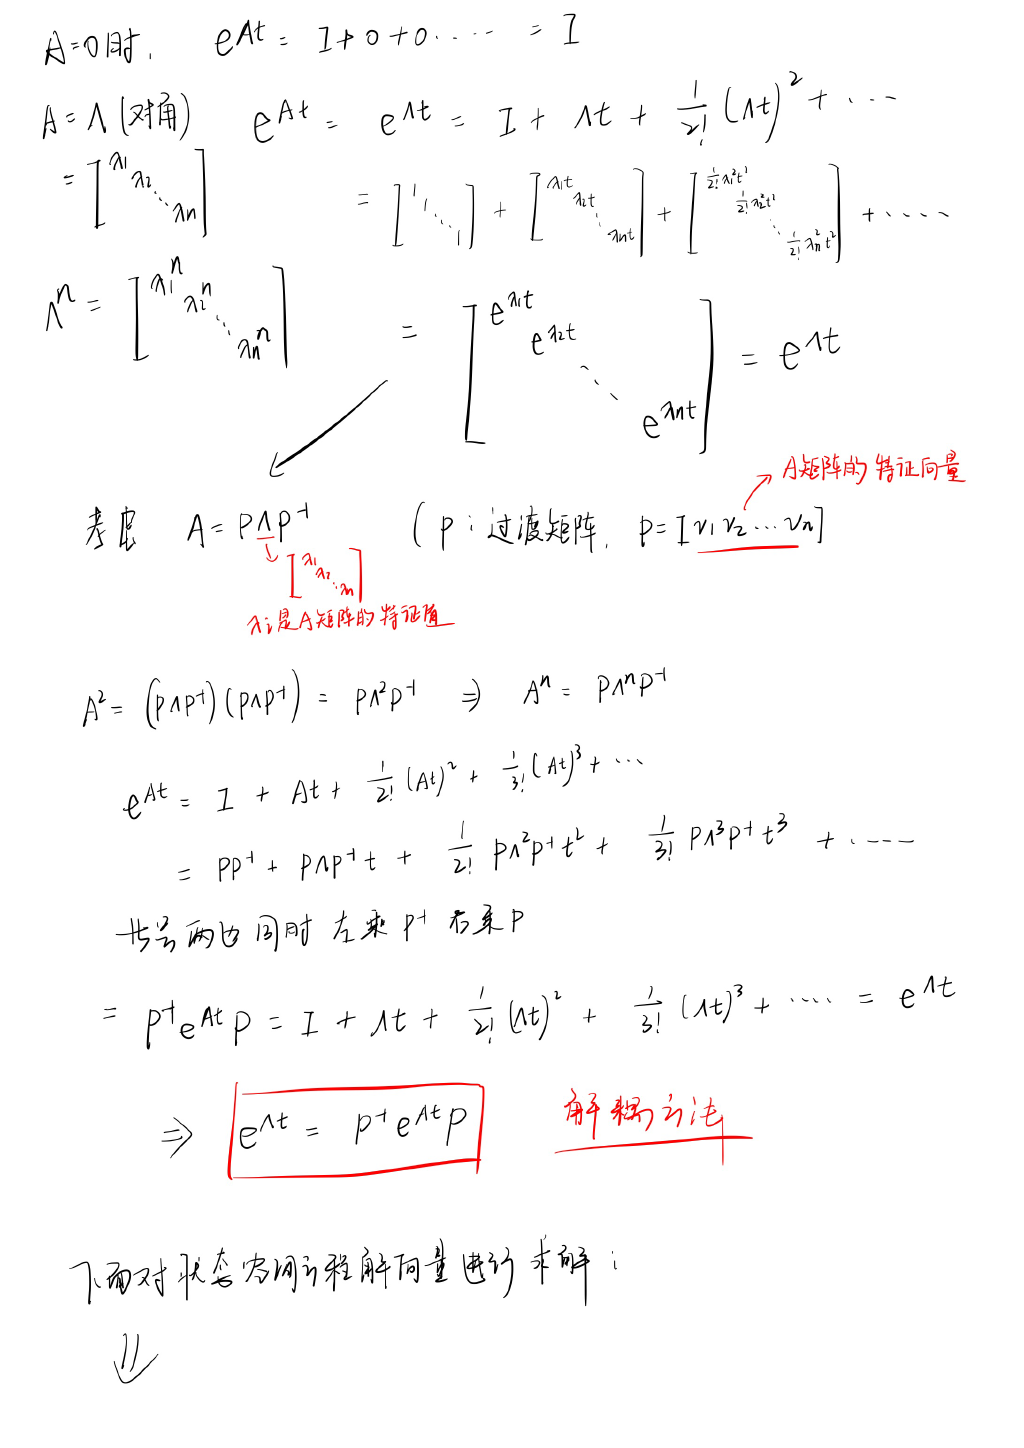 A=0时, e^{At} = I+0+0..... = I
A=Λ(对角) e^{At} = e^{Λt} = I + Λt + \frac{1}{2!}(Λt)^2 + ...
= [λ1 λ2 ⋱ λn] = [1 1 ⋱ 1] + [λ1t λ2t ⋱ λnt] + [\frac{1}{2!}λ1^2t^2 \frac{1}{2!}λ2^2t^2 ⋱ \frac{1}{2!}λn^2t^2] + .....
Λ^n = [λ1^n λ2^n ⋱ λn^n] = [e^{λ1t} e^{λ2t} ⋱ e^{λnt}] = e^{Λt}
A矩阵的特征向量
考虑 A = PΛP^{-1} (P:过渡矩阵, P=[v1 v2 ... vn]
[λ1 λ2 ⋱ λn]
λi是A矩阵的特征值
A^2 = (PΛP^{-1})(PΛP^{-1}) = PΛ^2P^{-1} ⇒ A^n = PΛ^nP^{-1}
e^{At} = I + At + \frac{1}{2!}(At)^2 + \frac{1}{3!}(At)^3 + ...
= PP^{-1} + PΛP^{-1}t + \frac{1}{2!}PΛ^2P^{-1}t^2 + \frac{1}{3!}PΛ^3P^{-1}t^3 + .....
等号两边同时左乘P^{-1}右乘P
= P^{-1}e^{At}P = I + Λt + \frac{1}{2!}(Λt)^2 + \frac{1}{3!}(Λt)^3 + .... = e^{Λt}
⇒ e^{Λt} = P^{-1}e^{At}P 解耦方法
下面对状态空间方程解向量进行求解:
⇓